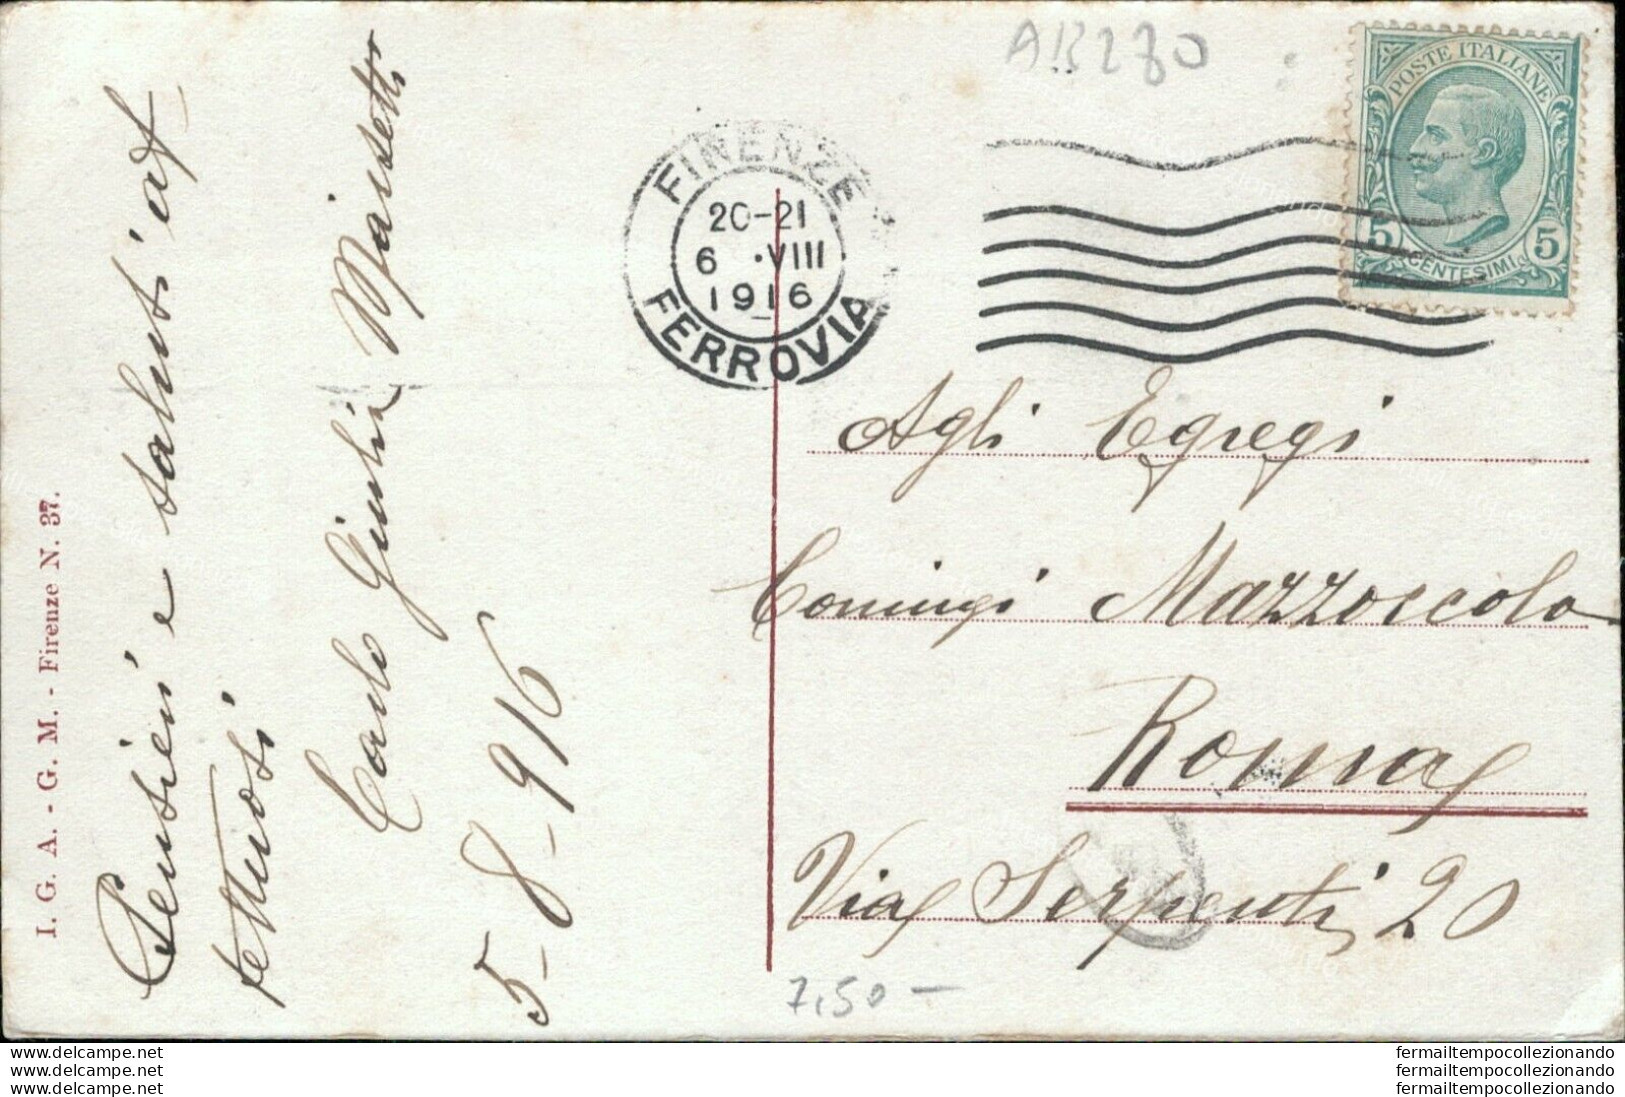 AR280
POSTE ITALIANE
5 CENTESIMI 5
FIRENZE
20-21
6 · VIII
1916
FERROVIA
I. G. A. - G. M. - Firenze N. 37.
Pensieri e saluti af
fettuosi
Carlo Giulia
5-8-916
Agli Egregi
Coniugi Mazzoccolo
Roma
Via Serpenti, 20
7,50 —
www.delcampe.net
www.delcampe.net
www.delcampe.net
fermailtempocollezionando
fermailtempocollezionando
fermailtempocollezionando